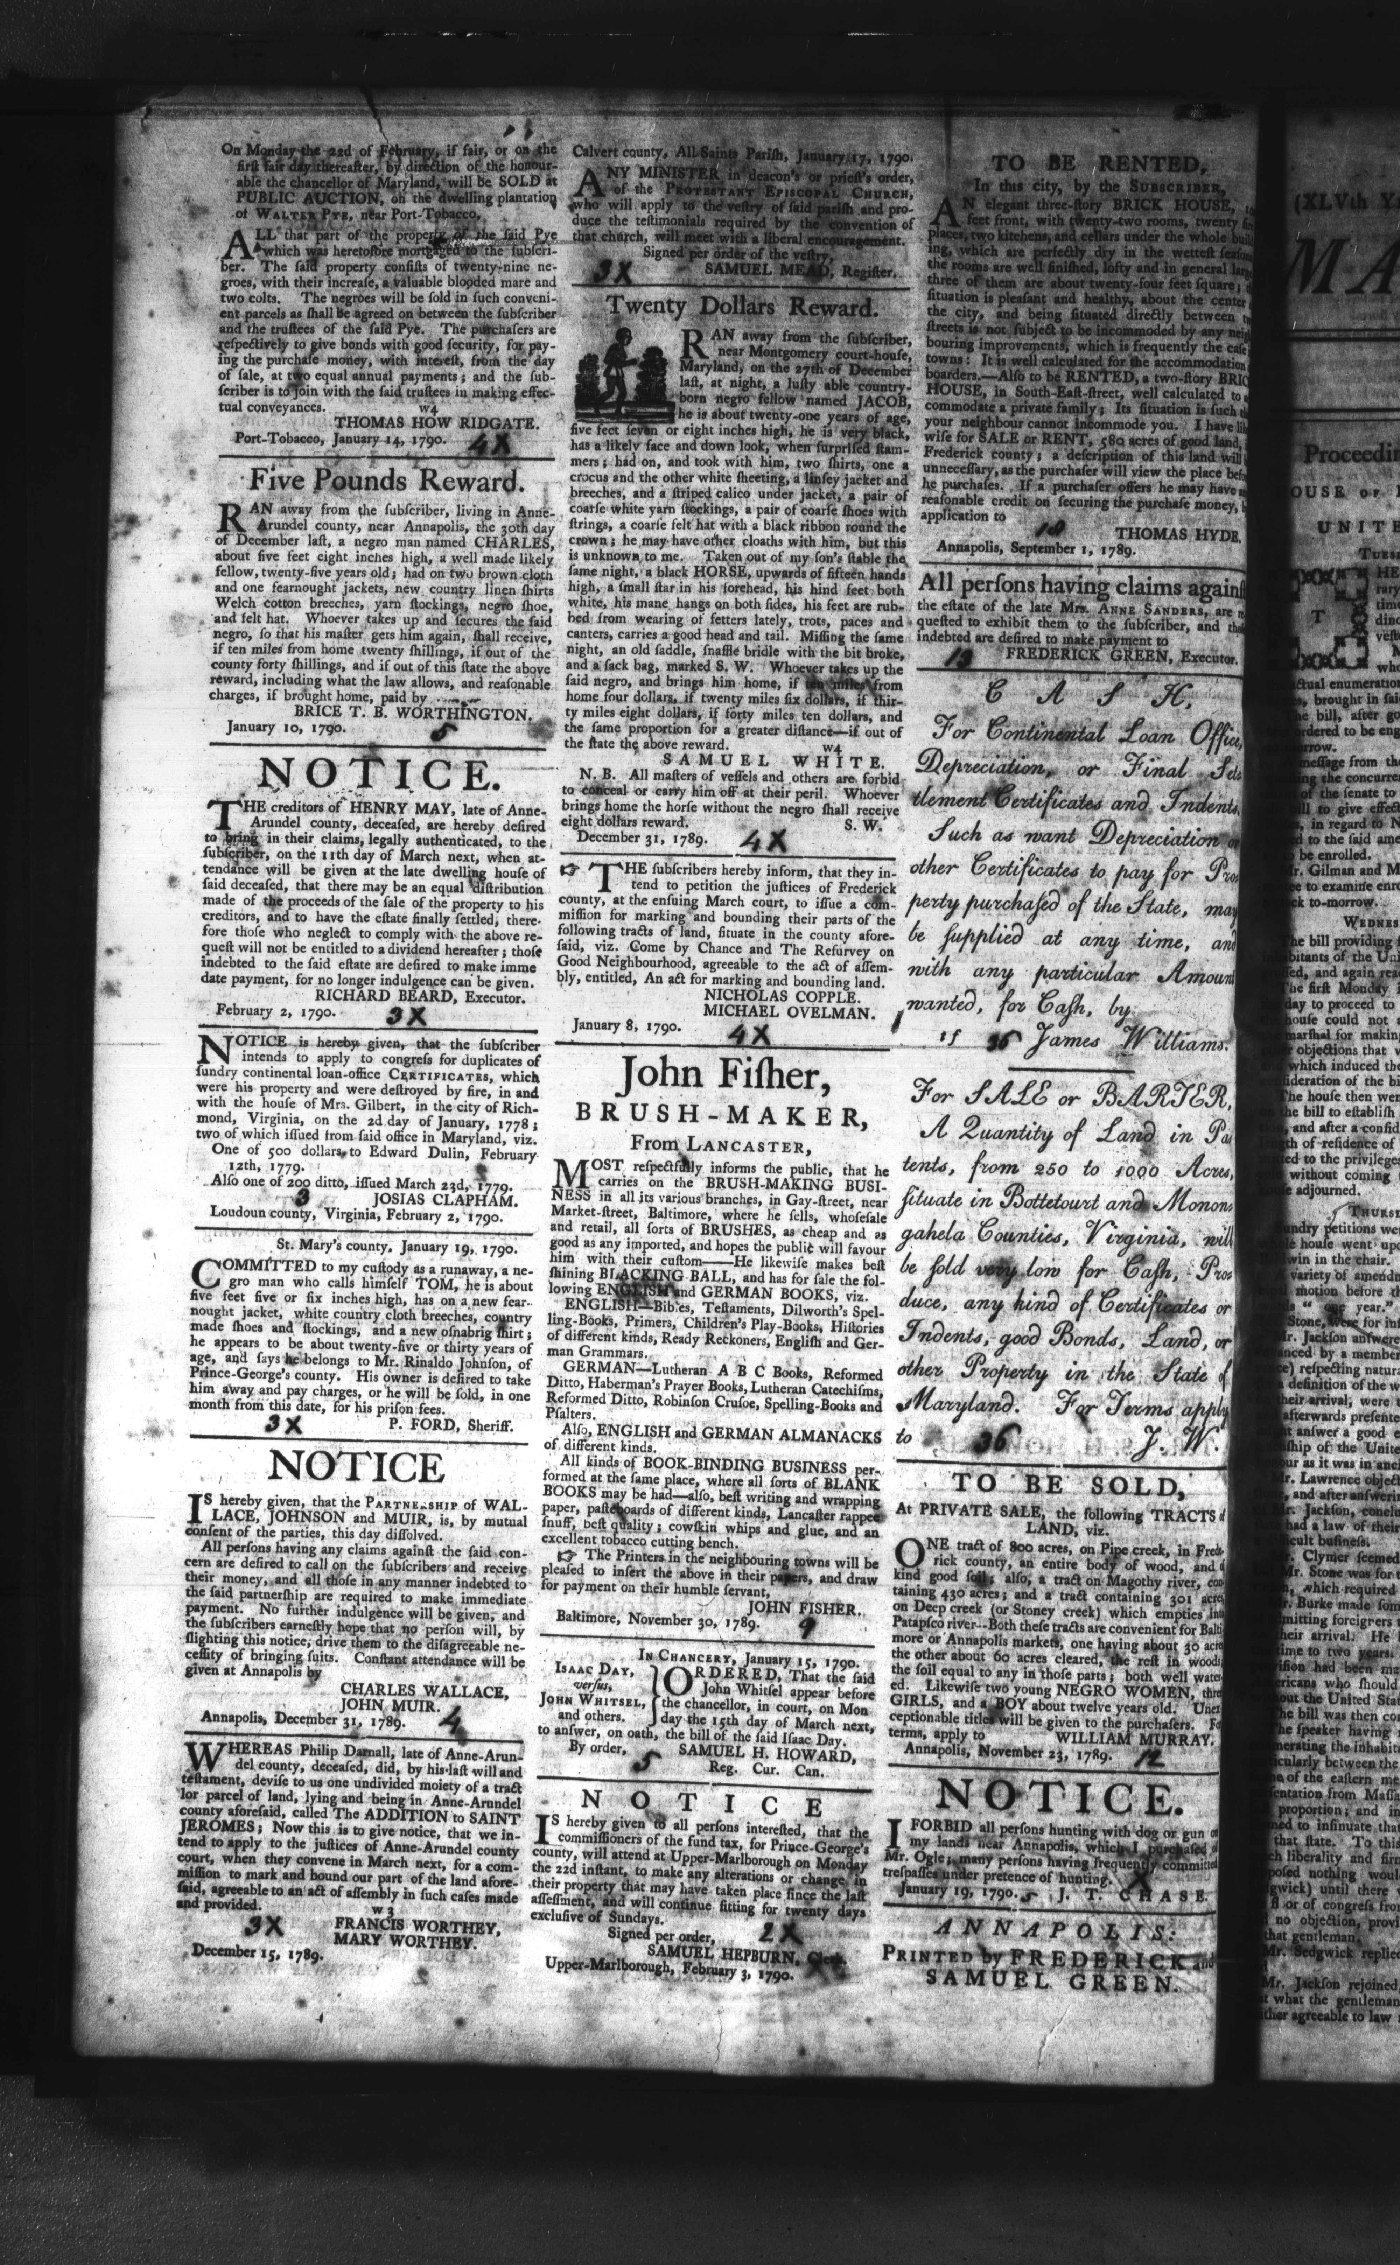 On Monday the 22d of February, if fair, or on the
first fair day thereafter, by direction of the honour-
able the chancellor of Maryland, will be SOLD at
PUBLIC AUCTION, on the dwelling plantation
of WALTER PYE, near Port-Tobacco,
ALL that part of the property of the said Pye
which was heretofore mortgaged to the subscri-
ber. The said property consists of twenty-nine ne-
groes, with their increase, a valuable blooded mare and
two colts. The negroes will be sold in such conveni-
ent parcels as shall be agreed on between the subscriber
and the trustees of the said Pye. The purchasers are
respectively to give bonds with good security, for pay-
ing the purchase money, with interest, from the day
of sale, at two equal annual payments; and the sub-
scriber is to join with the said trustees in making effec-
tual conveyances. w4
THOMAS HOW RIDGATE.
Port-Tobacco, January 14, 1790. 4X
Five Pounds Reward.
RAN away from the subscriber, living in Anne-
Arundel county, near Annapolis, the 30th day
of December last, a negro man named CHARLES,
about five feet eight inches high, a well made likely
fellow, twenty-five years old; had on two brown cloth
and one fearnought jackets, new country linen shirts
Welch cotton breeches, yarn stockings, negro shoe,
and felt hat. Whoever takes up and secures the said
negro, so that his master gets him again, shall receive,
if ten miles from home twenty shillings, if out of the
county forty shillings, and if out of this state the above
reward, including what the law allows, and reasonable
charges, if brought home, paid by
BRICE T. B. WORTHINGTON.
January 10, 1790. 5
NOTICE.
THE creditors of HENRY MAY, late of Anne-
Arundel county, deceased, are hereby desired
to bring in their claims, legally authenticated, to the
subscriber, on the 11th day of March next, when at-
tendance will be given at the late dwelling house of
said deceased, that there may be an equal distribution
made of the proceeds of the sale of the property to his
creditors, and to have the estate finally settled, there-
fore those who neglect to comply with the above re-
quest will not be entitled to a dividend hereafter; those
indebted to the said estate are desired to make imme
date payment, for no longer indulgence can be given.
RICHARD BEARD, Executor.
February 2, 1790. 3X
NOTICE is hereby given, that the subscriber
intends to apply to congress for duplicates of
sundry continental loan-office CERTIFICATES, which
were his property and were destroyed by fire, in and
with the house of Mrs. Gilbert, in the city of Rich-
mond, Virginia, on the 2d day of January, 1778;
two of which issued from said office in Maryland, viz.
One of 500 dollars to Edward Dulin, February
12th, 1779.
Also one of 200 ditto, issued March 23d, 1779.
3 JOSIAS CLAPHAM.
Loudoun county, Virginia, February 2, 1790.
St. Mary's county, January 19, 1790.
COMMITTED to my custody as a runaway, a ne-
gro man who calls himself TOM, he is about
five feet five or six inches high, has on a new fear-
nought jacket, white country cloth breeches, country
made shoes and stockings, and a new osnabrig shirt;
he appears to be about twenty-five or thirty years of
age, and says he belongs to Mr. Rinaldo Johnson, of
Prince-George's county. His owner is desired to take
him away and pay charges, or he will be sold, in one
month from this date, for his prison fees.
3X P. FORD, Sheriff.
NOTICE
IS hereby given, that the PARTNERSHIP of WAL-
LACE, JOHNSON and MUIR, is, by mutual
consent of the parties, this day dissolved.
All persons having any claims against the said con-
cern are desired to call on the subscribers and receive
their money, and all those in any manner indebted to
the said partnership are required to make immediate
payment. No further indulgence will be given, and
the subscribers earnestly hope that no person will, by
slighting this notice, drive them to the disagreeable ne-
cessity of bringing suits. Constant attendance will be
given at Annapolis by
CHARLES WALLACE,
JOHN MUIR.
Annapolis, December 31, 1789. 4
WHEREAS Philip Darnall, late of Anne-Arun-
del county, deceased, did, by his last will and
testament, devise to us one undivided moiety of a tract
lor parcel of land, lying and being in Anne-Arundel
county aforesaid, called The ADDITION to SAINT
JEROMES; Now this is to give notice, that we in-
tend to apply to the justices of Anne-Arundel county
court, when they convene in March next, for a com-
mission to mark and bound our part of the land afore-
said, agreeable to an act of assembly in such cases made
and provided. w3
3X FRANCIS WORTHEY,
MARY WORTHEY.
December 15, 1789.
Calvert county, All Saints Parish, January 17, 1790.
ANY MINISTER in deacon's or priest's order,
of the PROTESTANT EPISCOPAL CHURCH,
who will apply to the vestry of said parish and pro-
duce the testimonials required by the convention of
that church, will meet with a liberal encouragement.
Signed per order of the vestry,
3X SAMUEL MEAD, Register.
Twenty Dollars Reward.
RAN away from the subscriber,
near Montgomery court-house,
Maryland, on the 27th of December
last, at night, a lusty able country-
born negro fellow named JACOB,
he is about twenty-one years of age,
five feet seven or eight inches high, he is very black,
has a likely face and down look, when surprised stam-
mers; had on, and took with him, two shirts, one a
crocus and the other white sheeting, a linsey jacket and
breeches, and a striped calico under jacket, a pair of
coarse white yarn stockings, a pair of coarse shoes with
strings, a coarse felt hat with a black ribbon round the
crown; he may have other cloaths with him, but this
is unknown to me. Taken out of my son's stable the
same night, a black HORSE, upwards of fifteen hands
high, a small star in his forehead, his hind feet both
white, his mane hangs on both sides, his feet are rub-
bed from wearing of fetters lately, trots, paces and
canters, carries a good head and tail. Missing the same
night, an old saddle, snaffle bridle with the bit broke,
and a sack bag, marked S. W. Whoever takes up the
said negro, and brings him home, if ten miles from
home four dollars, if twenty miles six dollars, if thir-
ty miles eight dollars, if forty miles ten dollars, and
the same proportion for a greater distance—if out of
the state the above reward. w4
SAMUEL WHITE.
N. B. All masters of vessels and others are forbid
to conceal or carry him off at their peril. Whoever
brings home the horse without the negro shall receive
eight dollars reward. S. W.
December 31, 1789. 4X
☞ THE subscribers hereby inform, that they in-
tend to petition the justices of Frederick
county, at the ensuing March court, to issue a com-
mission for marking and bounding their parts of the
following tracts of land, situate in the county afore-
said, viz. Come by Chance and The Resurvey on
Good Neighbourhood, agreeable to the act of assem-
bly, entitled, An act for marking and bounding land.
NICHOLAS COPPLE.
MICHAEL OVELMAN.
January 8, 1790. 4X
John Fisher,
BRUSH-MAKER,
From LANCASTER,
MOST respectfully informs the public, that he
carries on the BRUSH-MAKING BUSI-
NESS in all its various branches, in Gay-street, near
Market-street, Baltimore, where he sells, wholesale
and retail, all sorts of BRUSHES, as cheap and as
good as any imported, and hopes the public will favour
him with their custom——He likewise makes best
shining BLACKING BALL, and has for sale the fol-
lowing ENGLISH and GERMAN BOOKS, viz.
ENGLISH—Bibles, Testaments, Dilworth's Spel-
ling-Books, Primers, Children's Play-Books, Histories
of different kinds, Ready Reckoners, English and Ger-
man Grammars.
GERMAN—Lutheran A B C Books, Reformed
Ditto, Haberman's Prayer Books, Lutheran Catechisms,
Reformed Ditto, Robinson Crusoe, Spelling-Books and
Psalters.
Also, ENGLISH and GERMAN ALMANACKS
of different kinds.
All kinds of BOOK-BINDING BUSINESS per-
formed at the same place, where all sorts of BLANK
BOOKS may be had—also, best writing and wrapping
paper, pasteboards of different kinds, Lancaster rappee
snuff, best quality; cowskin whips and glue, and an
excellent tobacco cutting bench.
☞ The Printers in the neighbouring towns will be
pleased to insert the above in their papers, and draw
for payment on their humble servant,
JOHN FISHER.
Baltimore, November 30, 1789. 9
IN CHANCERY, January 15, 1790.
ISAAC DAY,
versus,
JOHN WHITSEL,
and others.
ORDERED, That the said
John Whitsel appear before
the chancellor, in court, on Mon
day the 15th day of March next,
to answer, on oath, the bill of the said Isaac Day.
By order, SAMUEL H. HOWARD,
5 Reg. Cur. Can.
NOTICE
IS hereby given to all persons interested, that the
commissioners of the fund tax, for Prince-George's
county, will attend at Upper-Marlborough on Monday
the 22d instant, to make any alterations or change in
their property that may have taken place since the last
assessment, and will continue sitting for twenty days
exclusive of Sundays.
Signed per order, 2X
SAMUEL HEPBURN, Clerk.
Upper-Marlborough, February 3, 1790.
TO BE RENTED,
In this city, by the SUBSCRIBER,
AN elegant three-story BRICK HOUSE,
feet front, with twenty-two rooms, twenty
places, two kitchens, and cellars under the whole build
ing, which are perfectly dry in the wettest season
the rooms are well finished, lofty and in general large
three of them are about twenty-four feet square;
situation is pleasant and healthy, about the center
the city, and being situated directly between
streets is not subject to be incommoded by any
bouring improvements, which is frequently the case
towns: It is well calculated for the accommodation
boarders.—Also to be RENTED, a two-story BRIC
HOUSE, in South-East-street, well calculated to
commodate a private family; Its situation is such
your neighbour cannot incommode you. I have
wise for SALE or RENT, 580 acres of good land,
Frederick county; a description of this land will
unnecessary, as the purchaser will view the place
he purchases. If a purchaser offers he may have
reasonable credit on securing the purchase money,
application to
18 THOMAS HYDE.
Annapolis, September 1, 1789.
All persons having claims against
the estate of the late Mrs. ANNE SANDERS, are
quested to exhibit them to the subscriber, and
indebted are desired to make payment to
13 FREDERICK GREEN, Executor.
CASH,
For Continental Loan Office,
Depreciation, or Final Set-
tlement Certificates and Indents.
Such as want Depreciation or
other Certificates to pay for Pro-
perty purchased of the State, may
be supplied at any time, and
with any particular Amount
wanted, for Cash, by
tf 36 James Williams.
For SALE or BARTER,
A Quantity of Land in Pa-
tents, from 250 to 1000 Acres,
situate in Bottetourt and Monon-
gahela Counties, Virginia, will
be sold very low for Cash, Pro-
duce, any kind of Certificates or
Indents, good Bonds, Land, or
other Property in the State of
Maryland. For Terms apply
to 36 J. W.
TO BE SOLD,
At PRIVATE SALE, the following TRACTS of
LAND, viz.
ONE tract of 800 acres, on Pipe creek, in Frede-
rick county, an entire body of wood, and
kind good soil; also, a tract on Magothy river, con-
taining 430 acres; and a tract containing 301 acres
on Deep creek (or Stoney creek) which empties into
Patapsco river—Both these tracts are convenient for Balti
more or Annapolis markets, one having about 30 acres
the other about 60 acres cleared, the rest in woods
the soil equal to any in those parts; both well water-
ed. Likewise two young NEGRO WOMEN, three
GIRLS, and a BOY about twelve years old. Unex-
ceptionable titles will be given to the purchasers. For
terms, apply to WILLIAM MURRAY.
Annapolis, November 23, 1789. 12
NOTICE.
I FORBID all persons hunting with dog or gun on
my lands near Annapolis, which I purchased of
Mr. Ogle; many persons having frequently committed
trespasses under pretence of hunting. X
January 19, 1790. 5 J. T. CHASE.
ANNAPOLIS:
PRINTED by FREDERICK and
SAMUEL GREEN.
(XLVth
MA
Proceedin
UNITE